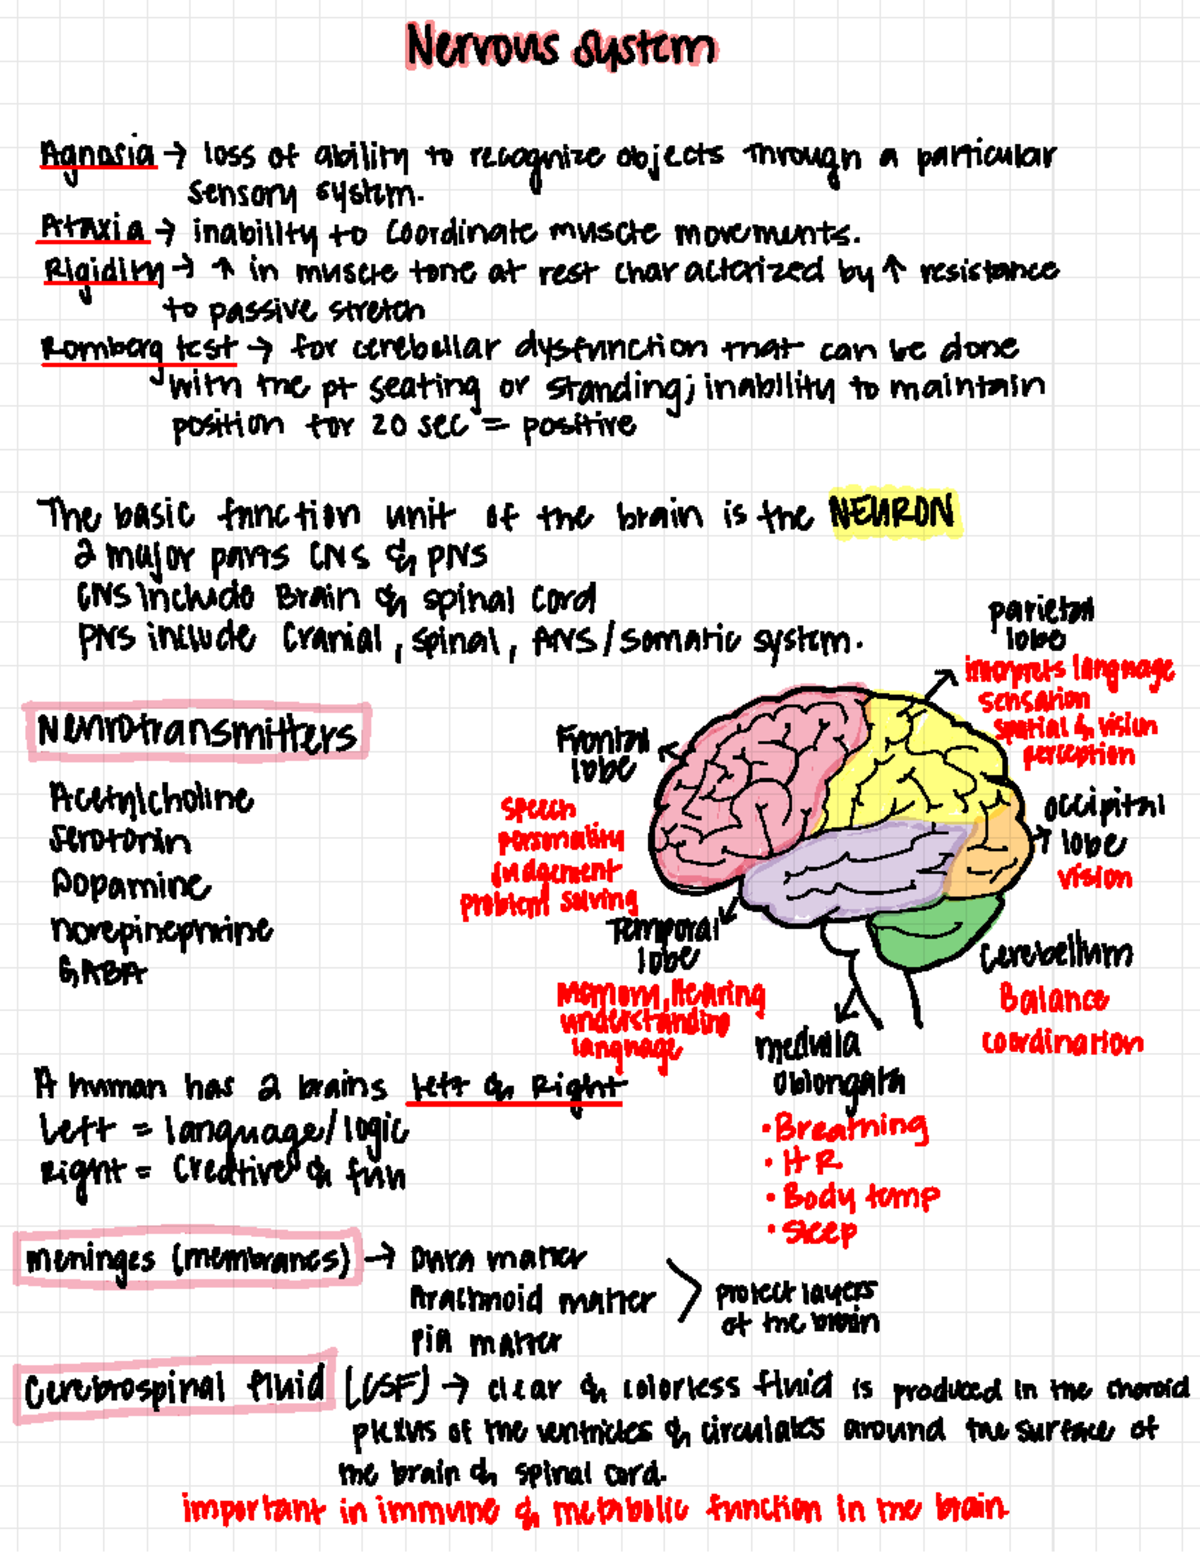 Nervous system
Agnosia → loss of ability to recognize objects through a particular
sensory system.
Ataxia → inability to coordinate muscle movements.
Rigidity → ↑ in muscle tone at rest characterized by ↑ resistance
to passive stretch
Romberg test → for cerebellar dysfunction that can be done
with the pt seating or standing; inability to maintain
position for 20 sec = positive
The basic function unit of the brain is the NEURON
2 major parts CNS & PNS
CNS include Brain & spinal cord
PNS include Cranial, spinal, ANS/somatic system.
Neurotransmitters
Acetylcholine
Serotonin
Dopamine
norepinephrine
GABA
Frontal
lobe
speech
personality
judgement
problem solving
parietal
lobe
interprets language
sensation
spatial & vision
perception
occipital
lobe
vision
Temporal
lobe
Memory, Hearing
understanding
language
Cerebellum
Balance
coordination
medulla
oblongata
• Breathing
• HR
• Body temp
• Sleep
A human has 2 brains left & Right
Left = language/logic
Right = Creative & fun
meninges (membranes) → Dura matter
Arachnoid matter
Pia matter
protect layers
of the brain
Cerebrospinal fluid (CSF) → clear & colorless fluid is produced in the choroid
plexus of the ventricles & circulates around the surface of
the brain & spinal cord.
important in immune & metabolic function in the brain